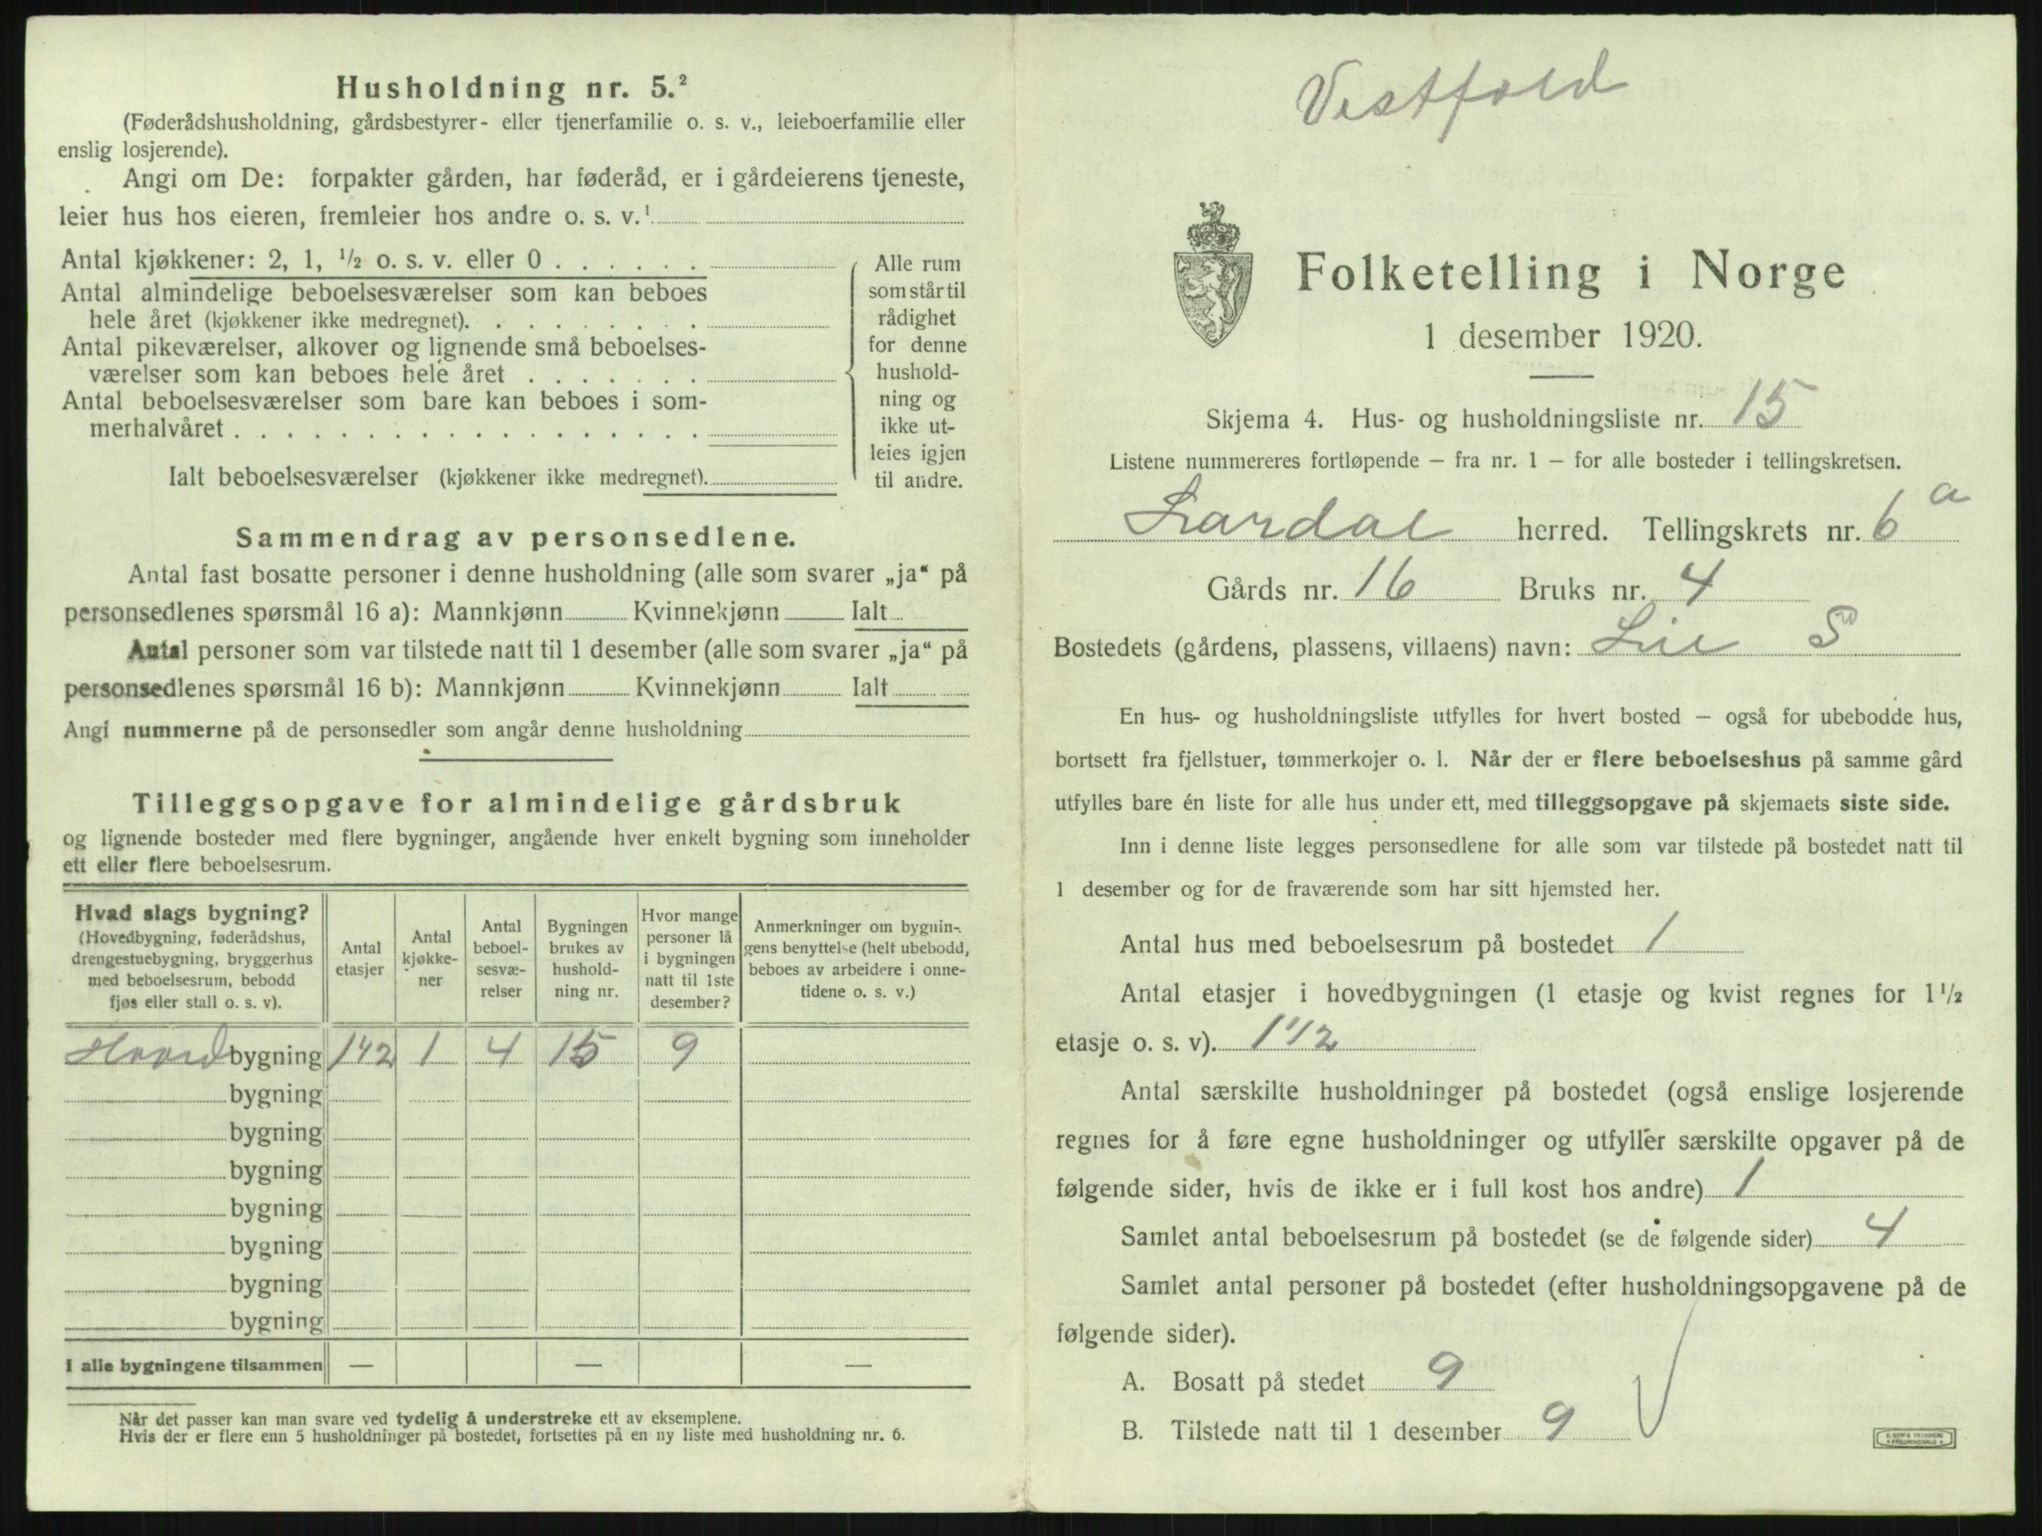 Husholdning nr. 5.²
(Føderådshusholdning, gårdsbestyrer- eller tjenerfamilie o. s. v., leieboerfamilie eller
enslig losjerende).
Angi om De: forpakter gården, har føderåd, er i gårdeierens tjeneste,
leier hus hos eieren, fremleier hos andre o. s. v.¹
Antal kjøkkener: 2, 1, ½ o. s. v. eller 0 . . . . . .
Antal almindelige beboelsesværelser som kan beboes
hele året (kjøkkener ikke medregnet). . . . . . . . .
Antal pikeværelser, alkover og lignende små beboelses-
værelser som kan beboes hele året . . . . . . .
Antal beboelsesværelser som bare kan beboes i som-
merhalvåret . . . . . . . . . . . . . . . . . .
Ialt beboelsesværelser (kjøkkener ikke medregnet).
Alle rum
som står til
rådighet
for denne
hushold-
ning og
ikke ut-
leies igjen
til andre.
Sammendrag av personsedlene.
Antal fast bosatte personer i denne husholdning (alle som svarer „ja“ på
personsedlenes spørsmål 16 a): Mannkjønn Kvinnekjønn Ialt
Antal personer som var tilstede natt til 1 desember (alle som svarer „ja“ på
personsedlenes spørsmål 16 b): Mannkjønn Kvinnekjønn Ialt
Angi nummerne på de personsedler som angår denne husholdning
Tilleggsopgave for almindelige gårdsbruk
og lignende bosteder med flere bygninger, angående hver enkelt bygning som inneholder
ett eller flere beboelsesrum.
Hvad slags bygning?
(Hovedbygning, føderådshus,
drengestuebygning, bryggerhus
med beboelsesrum, bebodd
fjøs eller stall o. s. v).
Antal
etasjer
Antal
kjøkke-
ner
Antal
beboel-
sesvæ-
relser
Bygningen
brukes av
hushold-
ning nr.
Hvor mange
personer lå
i bygningen
natt til 1ste
desember?
Anmerkninger om bygnin-
gens benyttelse (helt ubebodd,
beboes av arbeidere i onne-
tidene o. s. v.)
Hovedbygning 1 1/2 1 4 15 9
bygning
bygning
bygning
bygning
bygning
bygning
bygning
I alle bygningene tilsammen — — —
Når det passer kan man svare ved tydelig å understreke ett av eksemplene.
Hvis der er flere enn 5 husholdninger på bostedet, fortsettes på en ny liste med husholdning nr. 6.
Vestfold
Folketelling i Norge
1 desember 1920.
Skjema 4. Hus- og husholdningsliste nr. 15
Listene nummereres fortløpende – fra nr. 1 – for alle bosteder i tellingskretsen.
Lardal herred. Tellingskrets nr. 6 a
Gårds nr. 16 Bruks nr. 4
Bostedets (gårdens, plassens, villaens) navn: Lie S
En hus- og husholdningsliste utfylles for hvert bosted – også for ubebodde hus,
bortsett fra fjellstuer, tømmerkojer o. l. Når der er flere beboelseshus på samme gård
utfylles bare én liste for alle hus under ett, med tilleggsopgave på skjemaets siste side.
Inn i denne liste legges personsedlene for alle som var tilstede på bostedet natt til
1 desember og for de fraværende som har sitt hjemsted her.
Antal hus med beboelsesrum på bostedet 1
Antal etasjer i hovedbygningen (1 etasje og kvist regnes for 1½
etasje o. s. v). 1 1/2
Antal særskilte husholdninger på bostedet (også enslige losjerende
regnes for å føre egne husholdninger og utfyller særskilte opgaver på de
følgende sider, hvis de ikke er i full kost hos andre) 1
Samlet antal beboelsesrum på bostedet (se de følgende sider) 4
Samlet antal personer på bostedet (efter husholdningsopgavene på de
følgende sider).
A. Bosatt på stedet 9
B. Tilstede natt til 1 desember 9